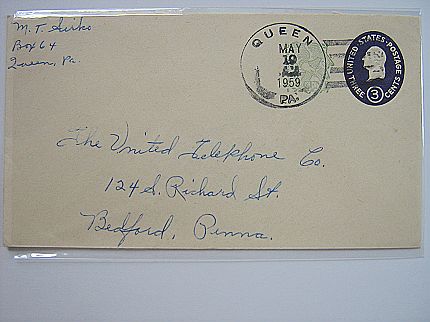 M. T. Sirko
Box 64
Queen, Pa.
QUEEN
MAY
19
1959
PA.
UNITED STATES • POSTAGE
THREE 3 CENTS
The United Telephone Co.
124 S. Richard St.
Bedford, Penna.